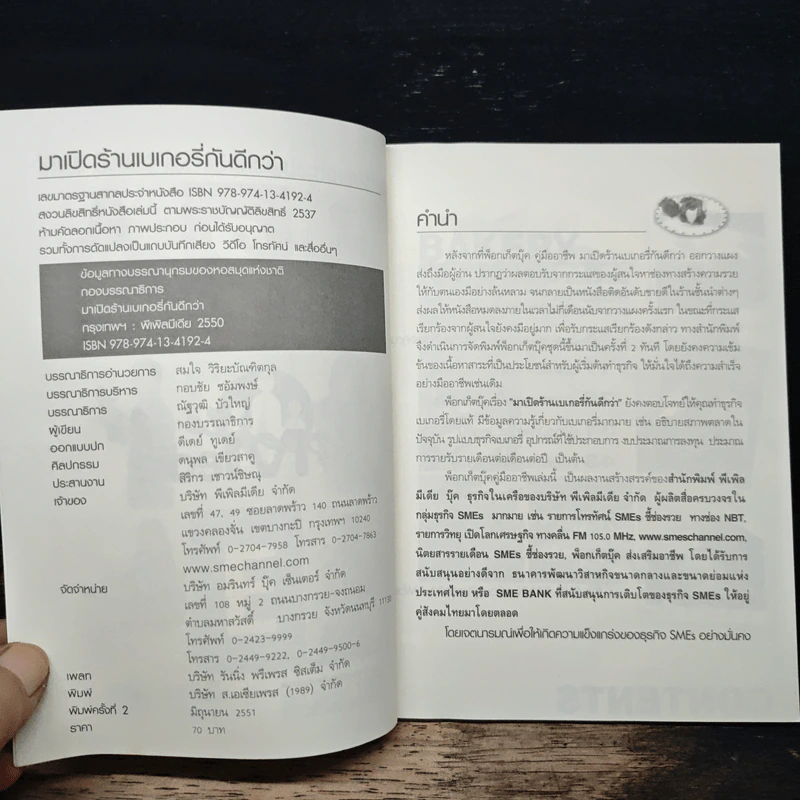 มาเปิดร้านเบเกอรี่กันดีกว่า
เลขมาตรฐานสากลประจำหนังสือ ISBN 978-974-13-4192-4
สงวนลิขสิทธิ์หนังสือเล่มนี้ ตามพระราชบัญญัติลิขสิทธิ์ 2537
ห้ามคัดลอกเนื้อหา ภาพประกอบ ก่อนได้รับอนุญาต
รวมทั้งการดัดแปลงเป็นแถบบันทึกเสียง วีดีโอ โทรทัศน์ และสื่ออื่นๆ
ข้อมูลทางบรรณานุกรมของหอสมุดแห่งชาติ
กองบรรณาธิการ
มาเปิดร้านเบเกอรี่กันดีกว่า
กรุงเทพฯ : พีเพิลมีเดีย 2550
ISBN 978-974-13-4192-4
บรรณาธิการอำนวยการ สมใจ วิริยะบัณฑิตกุล
บรรณาธิการบริหาร กอบชัย ซอัมพงษ์
บรรณาธิการ ณัฐวุฒิ บัวใหญ่
ผู้เขียน กองบรรณาธิการ
ออกแบบปก ดีเดย์ ทูเดย์
ศิลปกรรม ดนุพล เขียวสาคู
ประสานงาน สิริกร เชาวน์ชิษณุ
เจ้าของ บริษัท พีเพิลมีเดีย จำกัด
เลขที่ 47, 49 ซอยลาดพร้าว 140 ถนนลาดพร้าว
แขวงคลองจั่น เขตบางกะปิ กรุงเทพฯ 10240
โทรศัพท์ 0-2704-7958 โทรสาร 0-2704-7863
www.smeschannel.com
จัดจำหน่าย บริษัท อมรินทร์ บุ๊ค เซ็นเตอร์ จำกัด
เลขที่ 108 หมู่ 2 ถนนบางกรวย-จงถนอม
ตำบลมหาสวัสดิ์ บางกรวย จังหวัดนนทบุรี 11130
โทรศัพท์ 0-2423-9999
โทรสาร 0-2449-9222, 0-2449-9500-6
เพลท บริษัท รันนิ่ง พรีเพรส ซิสเต็ม จำกัด
พิมพ์ บริษัท ส.เอเซียเพรส (1989) จำกัด
พิมพ์ครั้งที่ 2 มิถุนายน 2551
ราคา 70 บาท
คำนำ
หลังจากที่พ็อกเก็ตบุ๊ค คู่มืออาชีพ มาเปิดร้านเบเกอรี่กันดีกว่า ออกวางแผง
ส่งถึงมือผู้อ่าน ปรากฏว่าผลตอบรับจากกระแสของผู้สนใจหาช่องทางสร้างความรวย
ให้กับตนเองมีอย่างล้นหลาม จนกลายเป็นหนังสือติดอันดับขายดีในร้านชั้นนำต่างๆ
ส่งผลให้หนังสือหมดลงภายในเวลาไม่กี่เดือนนับจากวางแผงครั้งแรก ในขณะที่กระแส
เรียกร้องจากผู้สนใจยังคงมีอยู่มาก เพื่อรับกระแสเรียกร้องดังกล่าว ทางสำนักพิมพ์
จึงดำเนินการจัดพิมพ์พ็อกเก็ตบุ๊คชุดนี้ขึ้นมาเป็นครั้งที่ 2 ทันที โดยยังคงความเข้ม
ข้นของเนื้อหาสาระที่เป็นประโยชน์สำหรับผู้เริ่มต้นทำธุรกิจ ให้มั่นใจได้ถึงความสำเร็จ
อย่างมืออาชีพเช่นเดิม
พ็อกเก็ตบุ๊คเรื่อง "มาเปิดร้านเบเกอรี่กันดีกว่า" ยังคงตอบโจทย์ให้คุณทำธุรกิจ
เบเกอรี่โดยแท้ มีข้อมูลความรู้เกี่ยวกับเบเกอรี่มากมาย เช่น อธิบายสภาพตลาดใน
ปัจจุบัน รูปแบบธุรกิจเบเกอรี่ อุปกรณ์ที่ใช้ประกอบการ งบประมาณการลงทุน ประมาณ
การรายรับรายเดือนต่อเดือนต่อปี เป็นต้น
พ็อกเก็ตบุ๊คคู่มืออาชีพเล่มนี้ เป็นผลงานสร้างสรรค์ของสำนักพิมพ์ พีเพิล
มีเดีย บุ๊ค ธุรกิจในเครือของบริษัท พีเพิลมีเดีย จำกัด ผู้ผลิตสื่อครบวงจรใน
กลุ่มธุรกิจ SMEs มากมาย เช่น รายการโทรทัศน์ SMEs ชี้ช่องรวย ทางช่อง NBT,
รายการวิทยุ เปิดโลกเศรษฐกิจ ทางคลื่น FM 105.0 MHz, www.smeschannel.com,
นิตยสารรายเดือน SMEs ชี้ช่องรวย, พ็อกเก็ตบุ๊ค ส่งเสริมอาชีพ โดยได้รับการ
สนับสนุนอย่างดีจาก ธนาคารพัฒนาวิสาหกิจขนาดกลางและขนาดย่อมแห่ง
ประเทศไทย หรือ SME BANK ที่สนับสนุนการเติบโตของธุรกิจ SMEs ให้อยู่
คู่สังคมไทยมาโดยตลอด
โดยเจตนารมณ์เพื่อให้เกิดความแข็งแกร่งของธุรกิจ SMEs อย่างมั่นคง